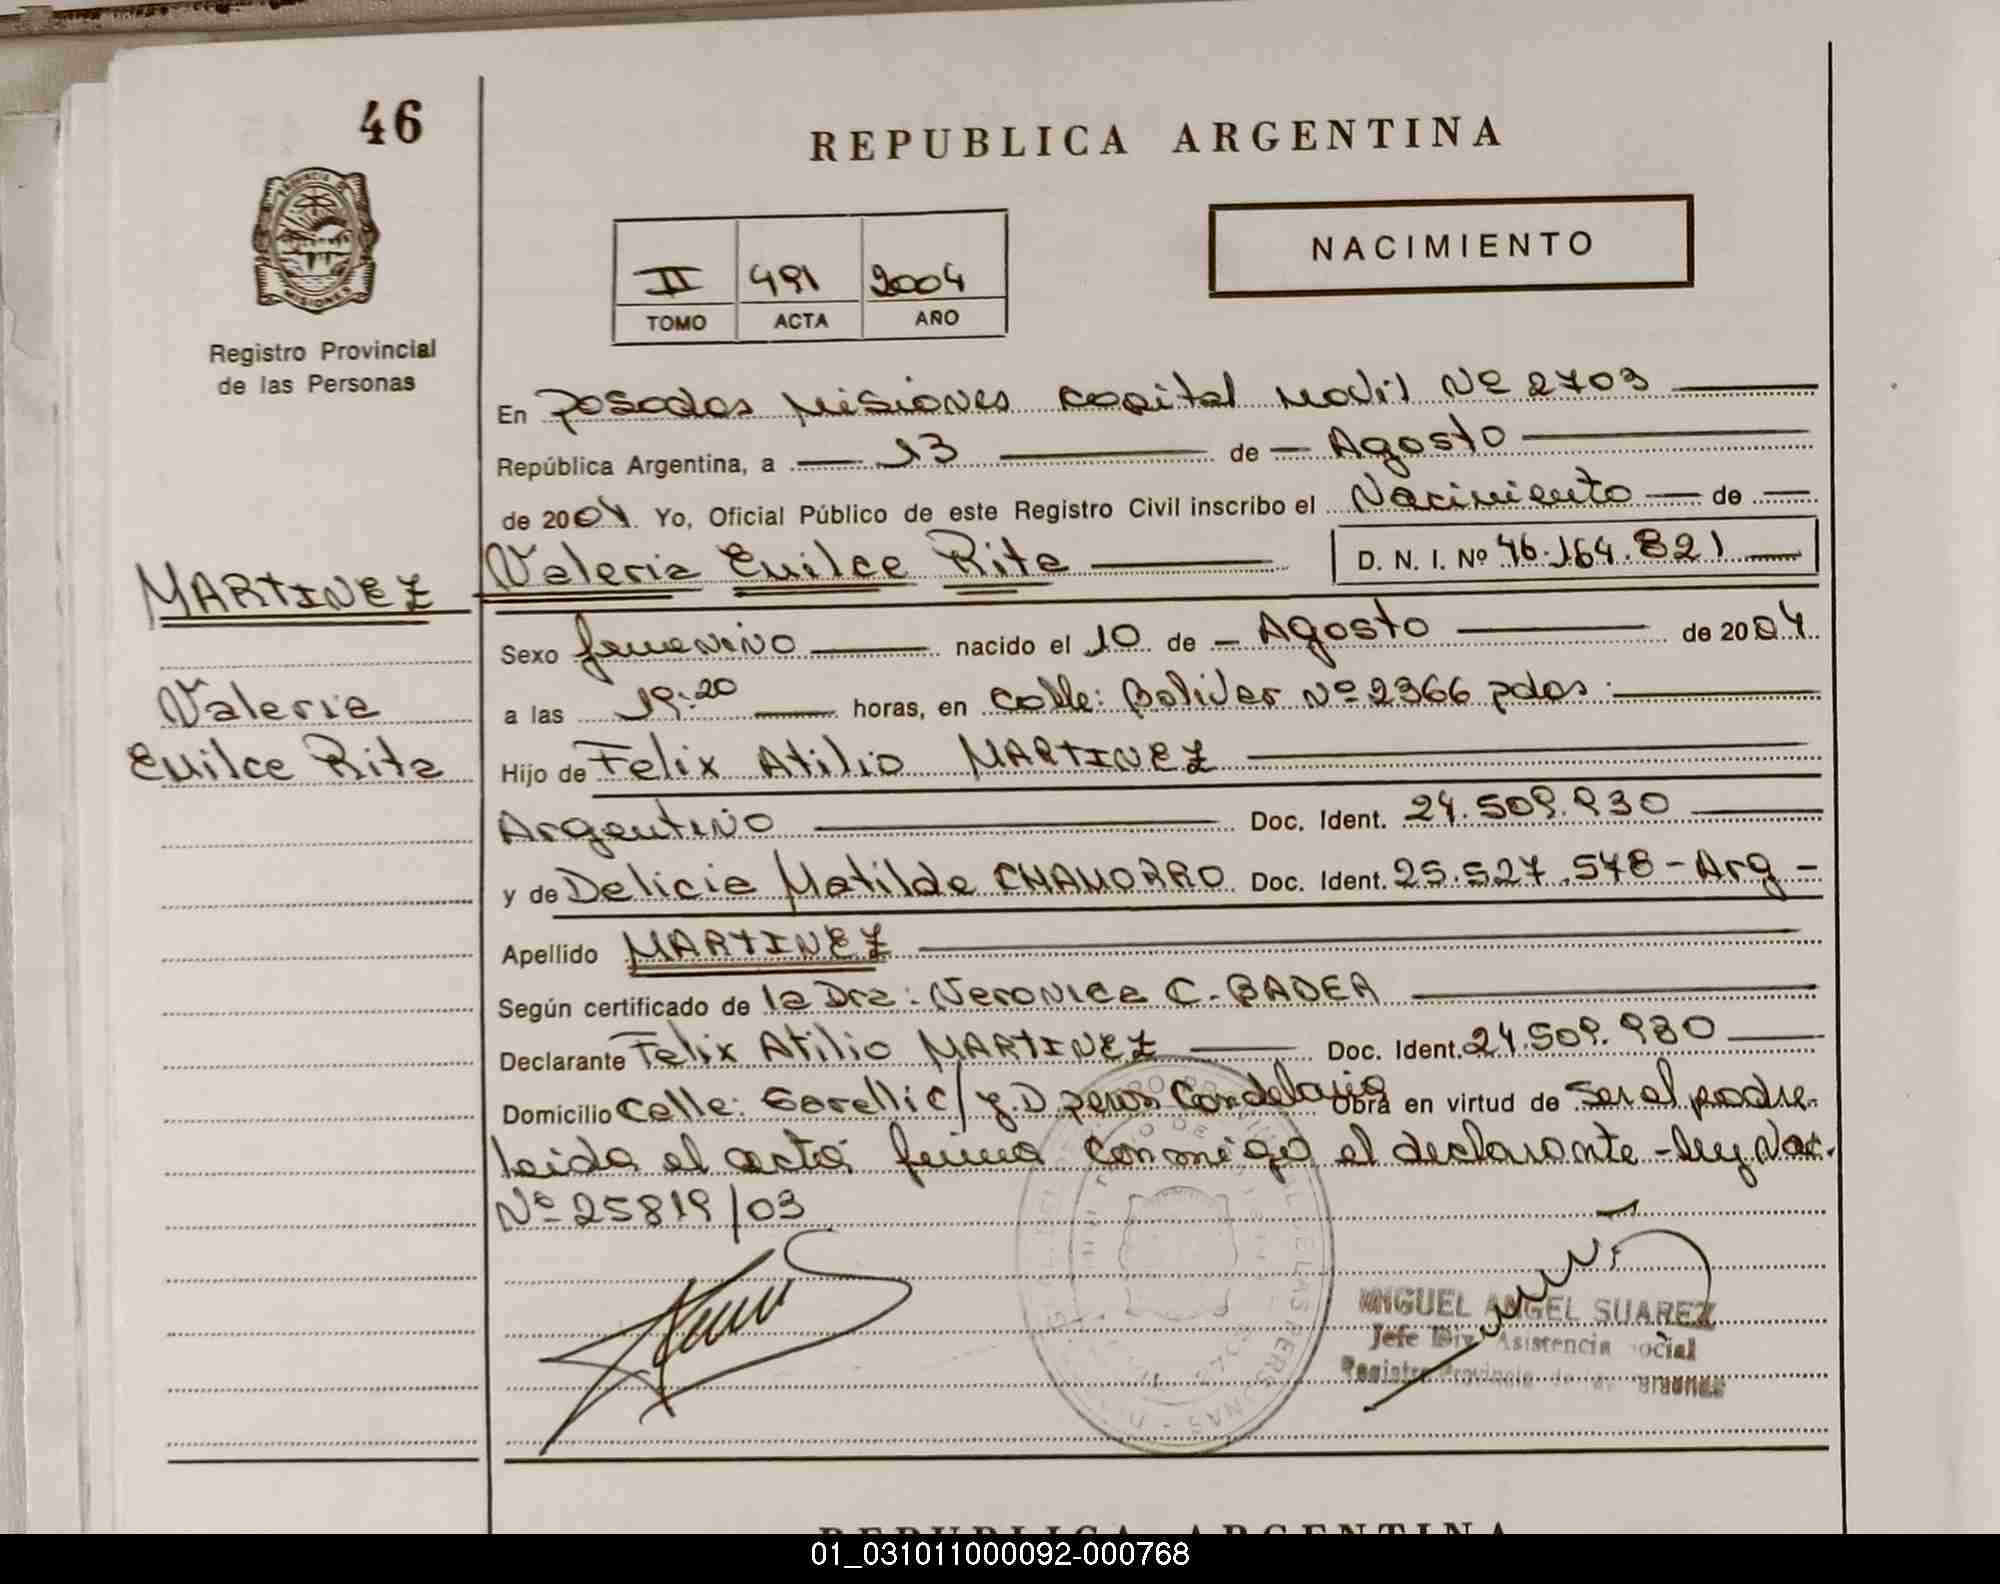 46
REPUBLICA ARGENTINA
PROVINCIA DE
MISIONES
Registro Provincial
de las Personas
NACIMIENTO
II 491 2004
TOMO ACTA AÑO
En Posadas Misiones Capital Movil Nº 2703
República Argentina, a 13 de Agosto
de 2004 Yo, Oficial Público de este Registro Civil inscribo el Nacimiento de
MARTINEZ
Valeria Evilce Rita D. N. I. Nº 46.164.821
Sexo femenino nacido el 10 de Agosto de 2004
Valeria
a las 19:20 horas, en Calle: Bolivar Nº 2366 pdas.
Evilce Rita
Hijo de Felix Atilio MARTINEZ
Argentino Doc. Ident. 24.509.930
y de Delicia Matilde CHAMORRO Doc. Ident. 25.527.578 - Arg -
Apellido MARTINEZ
Según certificado de la Dra: Veronica C. BADER
Declarante Felix Atilio MARTINEZ Doc. Ident. 24.509.930
Domicilio Calle: C/ J.D. peron Candelaria Obra en virtud de ser el padre.
leida el acta firma conmigo el declarante - ley Nac.
Nº 25819/03
MIGUEL ANGEL SUAREZ
Jefe Div. Asistencia Social
Registro Provincial de las Personas
REPUBLICA ARGENTINA
01_031011000092-000768